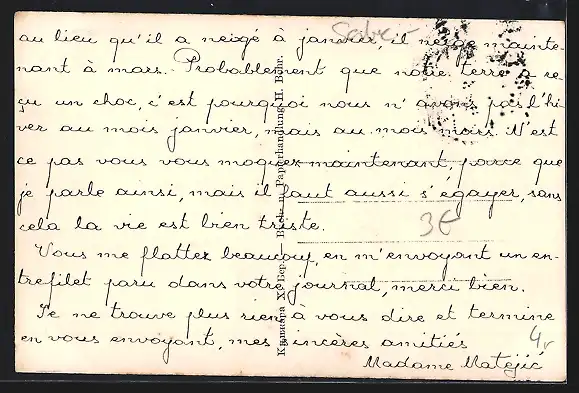 au lieu qu'il a neigé à janvier, il neige mainte-
nant à mars. Probablement que notre terre a re-
çu un choc, c'est pourquoi nous n'avons pas l'hi-
ver au mois janvier, mais au mois mars. N'est
ce pas vous vous moquez maintenant, parce que
je parle ainsi, mais il faut aussi s'égayer, sans
cela la vie est bien triste.
Vous me flattez beaucoup, en m'envoyant un en-
trefilet paru dans votre journal, merci bien.
Je ne trouve plus rien à vous dire et termine
en vous envoyant, mes sincères amitiés
Madame Matejić
3€
4,
Buch- u. Papierhandlung H. Böhr.